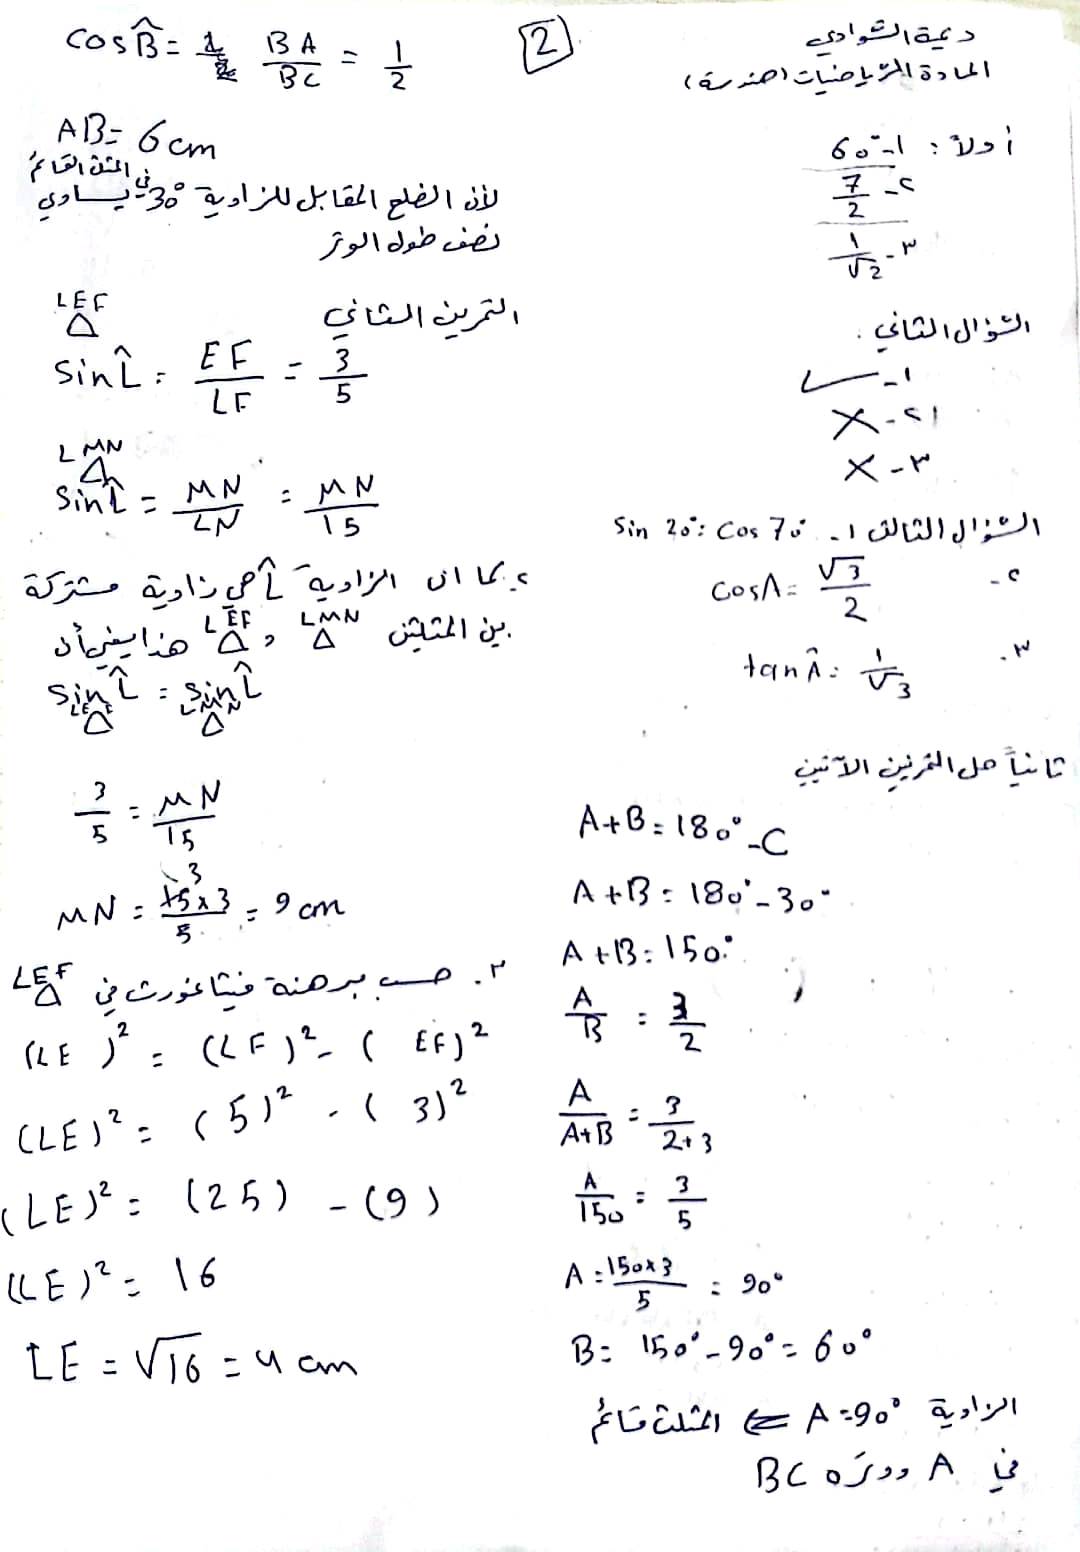 ديمة الشوادي
المادة الرياضيات (هندسة)
أولاً: 1- 60°
٢- 7/2
٣- 1/√2
السؤال الثاني.
١- ✓
٢- X
٣- X
السؤال الثالث ١- Sin 20° = Cos 70°
٢- cosA = √3/2
٣. tan Â = 1/√3
ثانياً حل التمرينين الآتيين
A+B = 180° - C
A+B = 180° - 30°
A+B = 150°
A/B = 3/2
A/A+B = 3/2+3
A/150 = 3/5
A = 150x3/5 = 90°
B = 150° - 90° = 60°
الزاوية A = 90° ⇐ المثلث قائم
في A ووتره BC
2
cos B̂ = BA/BC = 1/2
AB = 6 cm
لأن الضلع المقابل للزاوية 30° في المثلث القائم يساوي
نصف طول الوتر
التمرين الثاني
LEF △
Sin L̂ = EF/LF = 3/5
LMN △
Sin L̂ = MN/LN = MN/15
٢. بما ان الزاوية L̂ هي زاوية مشتركة
بين المثلثين LMN △ و LEF △ هذا يعني أن
Sin L̂ LEF △ = Sin L̂ LMN △
3/5 = MN/15
MN = 15x3/5 = 9 cm
٣. حسب مبرهنة فيثاغورث في LEF △
(LE)² = (LF)² - (EF)²
(LE)² = (5)² - (3)²
(LE)² = (25) - (9)
(LE)² = 16
LE = √16 = 4 cm